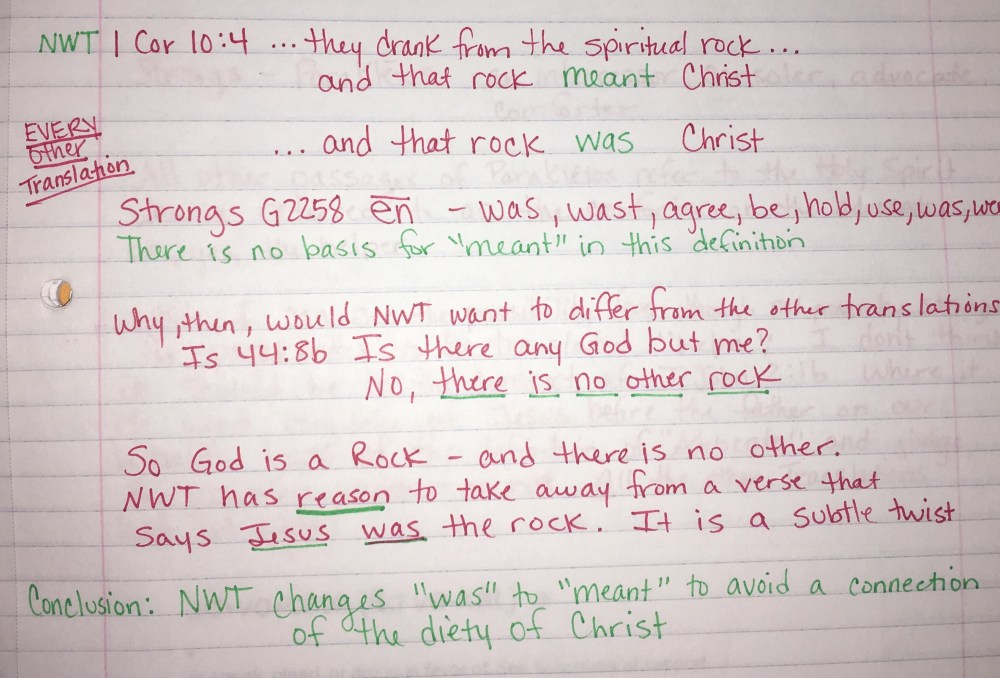 NWT 1 Cor 10:4 ... they drank from the spiritual rock ...
and that rock meant Christ
EVERY
other
Translation
... and that rock was Christ
Strongs G2258 ēn - was, wast, agree, be, hold, use, was, we
There is no basis for "meant" in this definition
Why, then, would NWT want to differ from the other translations
Is 44:8b Is there any God but me?
No, there is no other rock
So God is a Rock - and there is no other.
NWT has reason to take away from a verse that
says Jesus was the rock. It is a subtle twist
Conclusion: NWT changes "was" to "meant" to avoid a connection
of the diety of Christ